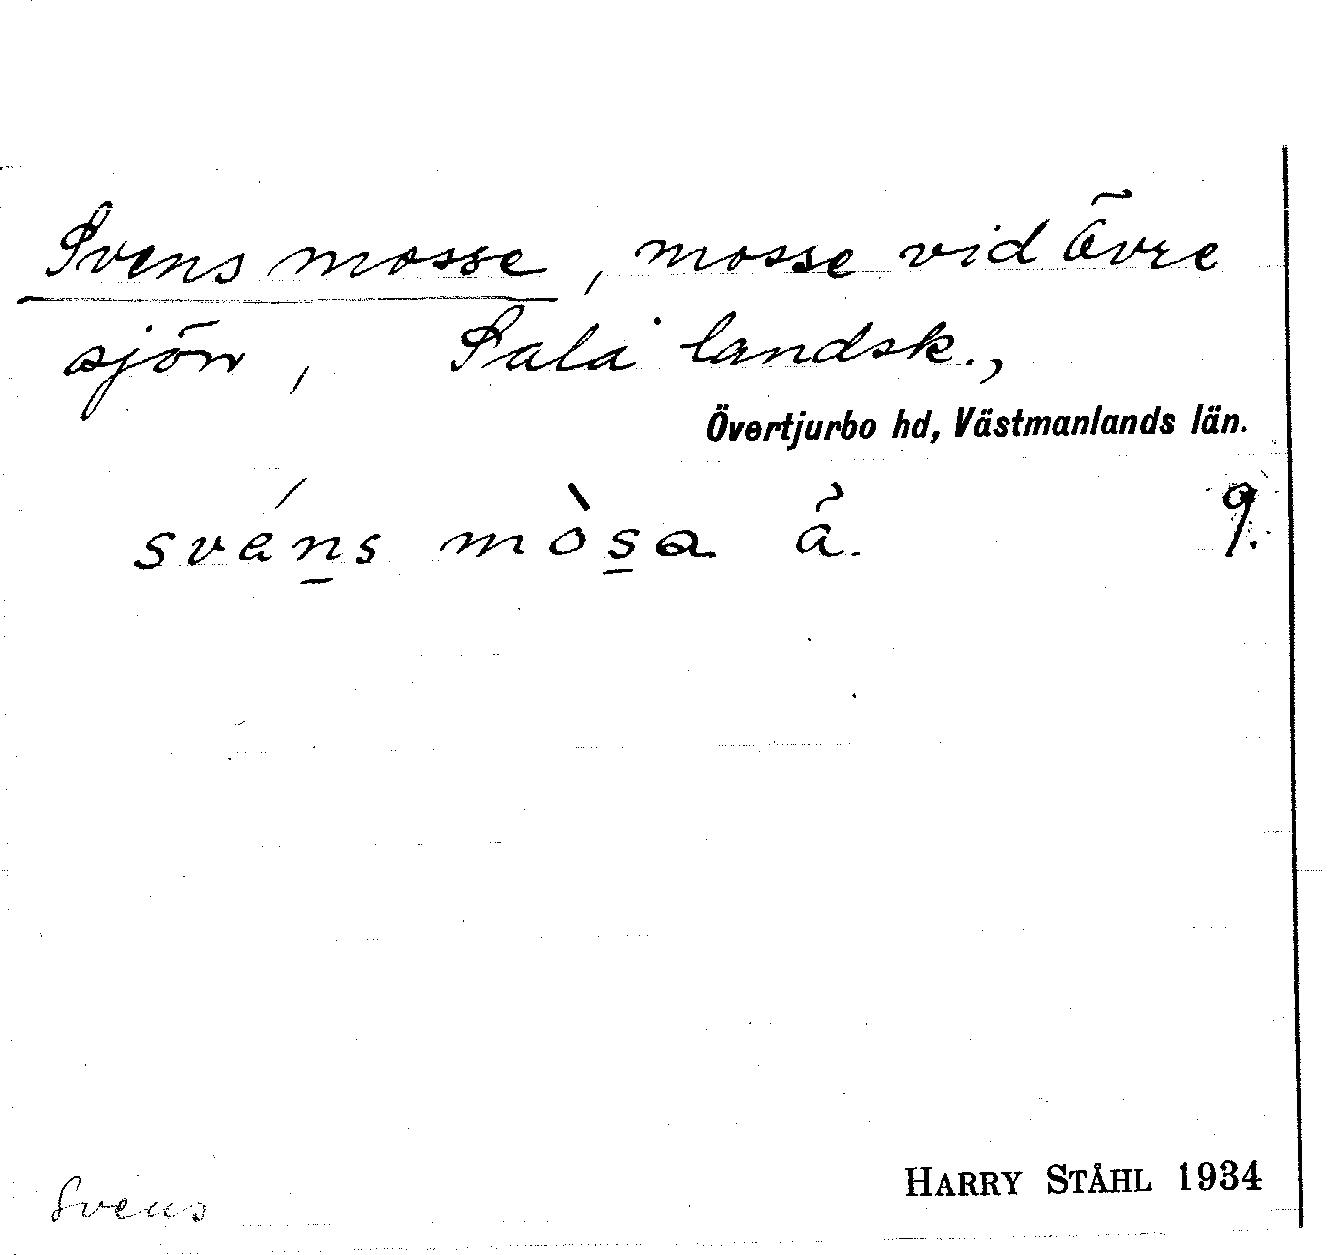 Svens mosse, mosse vid Övre
sjön, Sala landsk.,
Övertjurbo hd, Västmanlands län.
sváns mòsa ã. 9.
Svens
HARRY STÅHL 1934